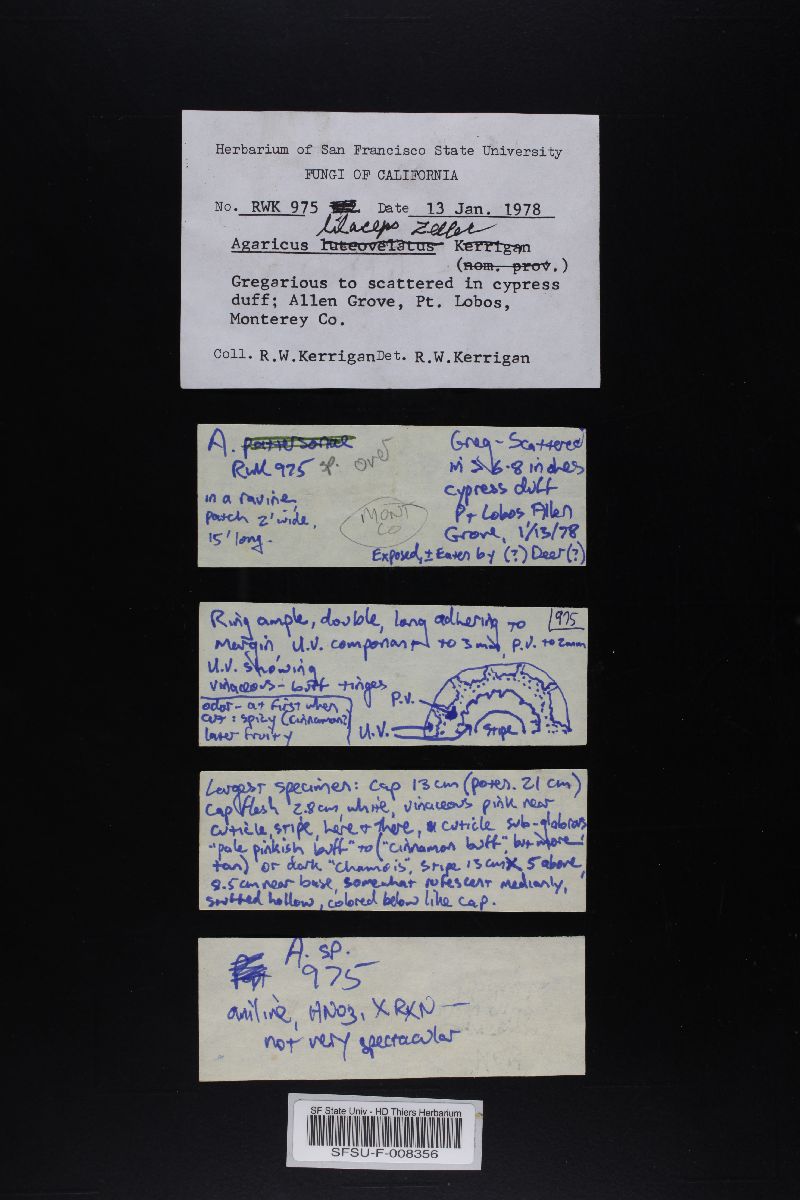 Herbarium of San Francisco State University
FUNGI OF CALIFORNIA
No. RWK 975 Date 13 Jan. 1978
lilaceps Zeller
Agaricus luteovelatus Kerrigan
(nom. prov.)
Gregarious to scattered in cypress
duff; Allen Grove, Pt. Lobos,
Monterey Co.
Coll. R.W.Kerrigan Det. R.W.Kerrigan
A. pattersonae
RWK 975 sp. over
in a ravine,
patch 2' wide,
15' long.
MONT
CO
Greg - Scattered
in 6-8 inches
cypress duff
Pt Lobos Allen
Grove, 1/13/78
Exposed, ± Eaten by (?) Deer (?)
Ring ample, double, long adhering to
975
margin, U.V. component to 3 mm, P.V. to 2mm
U.V. showing
vinaceous-buff tinges
odor - at first when
cut: spicy (cinnamon?)
later fruity
P.V.
U.V.
stipe
Largest specimen: cap 13 cm (poten. 21 cm)
cap flesh 2.8 cm, white, vinaceous pink near
cuticle, stipe, here & there, cuticle sub-glabrous
"pale pinkish buff" to ("cinnamon buff" but more
tan) or dark "chamois", stipe 13 cm X 5 above,
8.5 cm near base, somewhat rufescent medianly,
stuffed hollow, colored below like cap.
A. sp.
975
aniline, HNO3, X RXN —
not very spectacular
SF State Univ - HD Thiers Herbarium
SFSU-F-008356